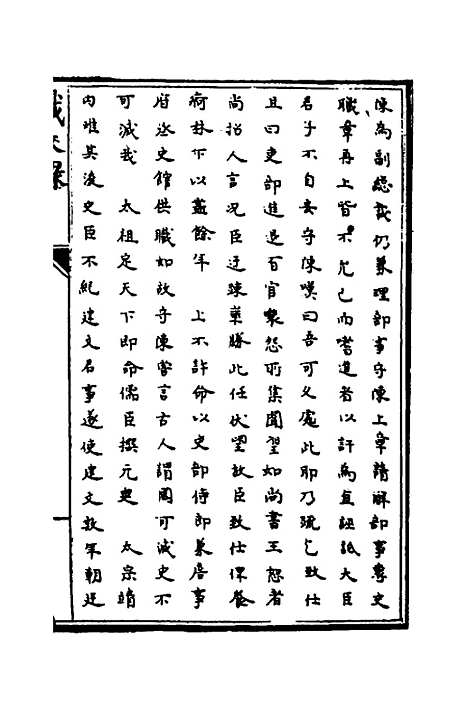 陳為副總裁仍兼理部事守陳上章請解部事專史
職章再上皆不允已而嗜進者以訐為直誣詆大臣
君子不自安守陳嘆曰吾可久處此耶乃疏乞致仕
且曰吏部進退百官衆怨所集聞望如尚書王恕者
尚招人言况臣迂疎藥勝此任伏望放臣致仕保養
疴林下以蓋餘年　上不許命以吏部侍郎兼詹事
府丞史館供職如故守陳嘗言古人謂國可滅史不
可滅我　太祖定天下即命儒臣撰元史　太宗靖
内難其後史臣不紀建文君事遂使建文數年朝廷